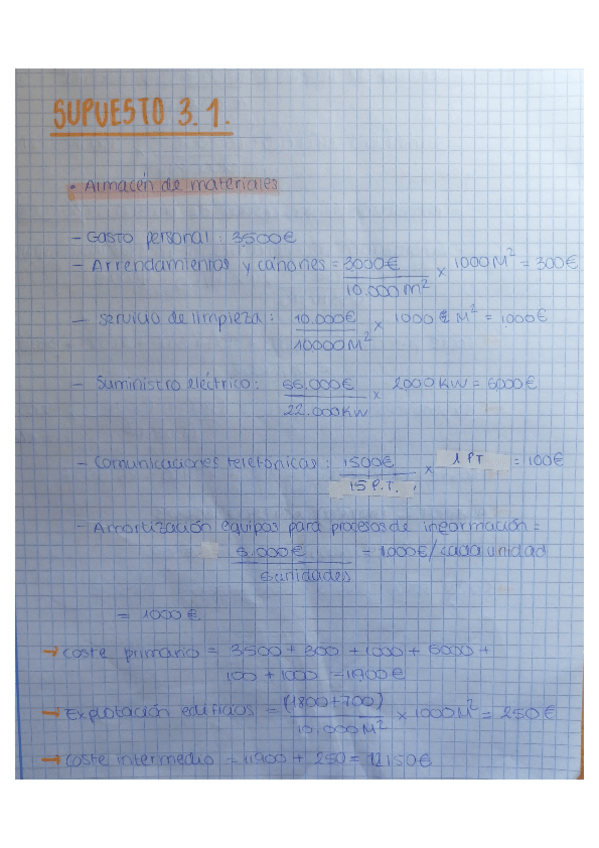 SUPUESTO 3.1.
• Almacén de materiales
- Gasto personal: 3,500€
- Arrendamientos y cánones = 3000€ / 10.000 m² × 1000 M² = 300€
- Servicio de limpieza: 10.000€ / 10000 M² × 1000 M² = 1000€
- Suministro eléctrico: 66.000€ / 22.000KW × 2000 KW = 6000€
- Comunicaciones telefónicas: 1500€ / 15 P.T. × 1 PT = 100€
- Amortización equipos para procesos de información =
6.000€ / 6 unidades = 1000€/cada unidad
= 1000€.
→ Coste primario = 3500 + 300 + 1000 + 6000 +
100 + 1000 = 11900€
→ Explotación edificios = (1800+700) / 10.000 M² × 1000 M² = 250€
→ Coste intermedio = 11900 + 250 = 12150€